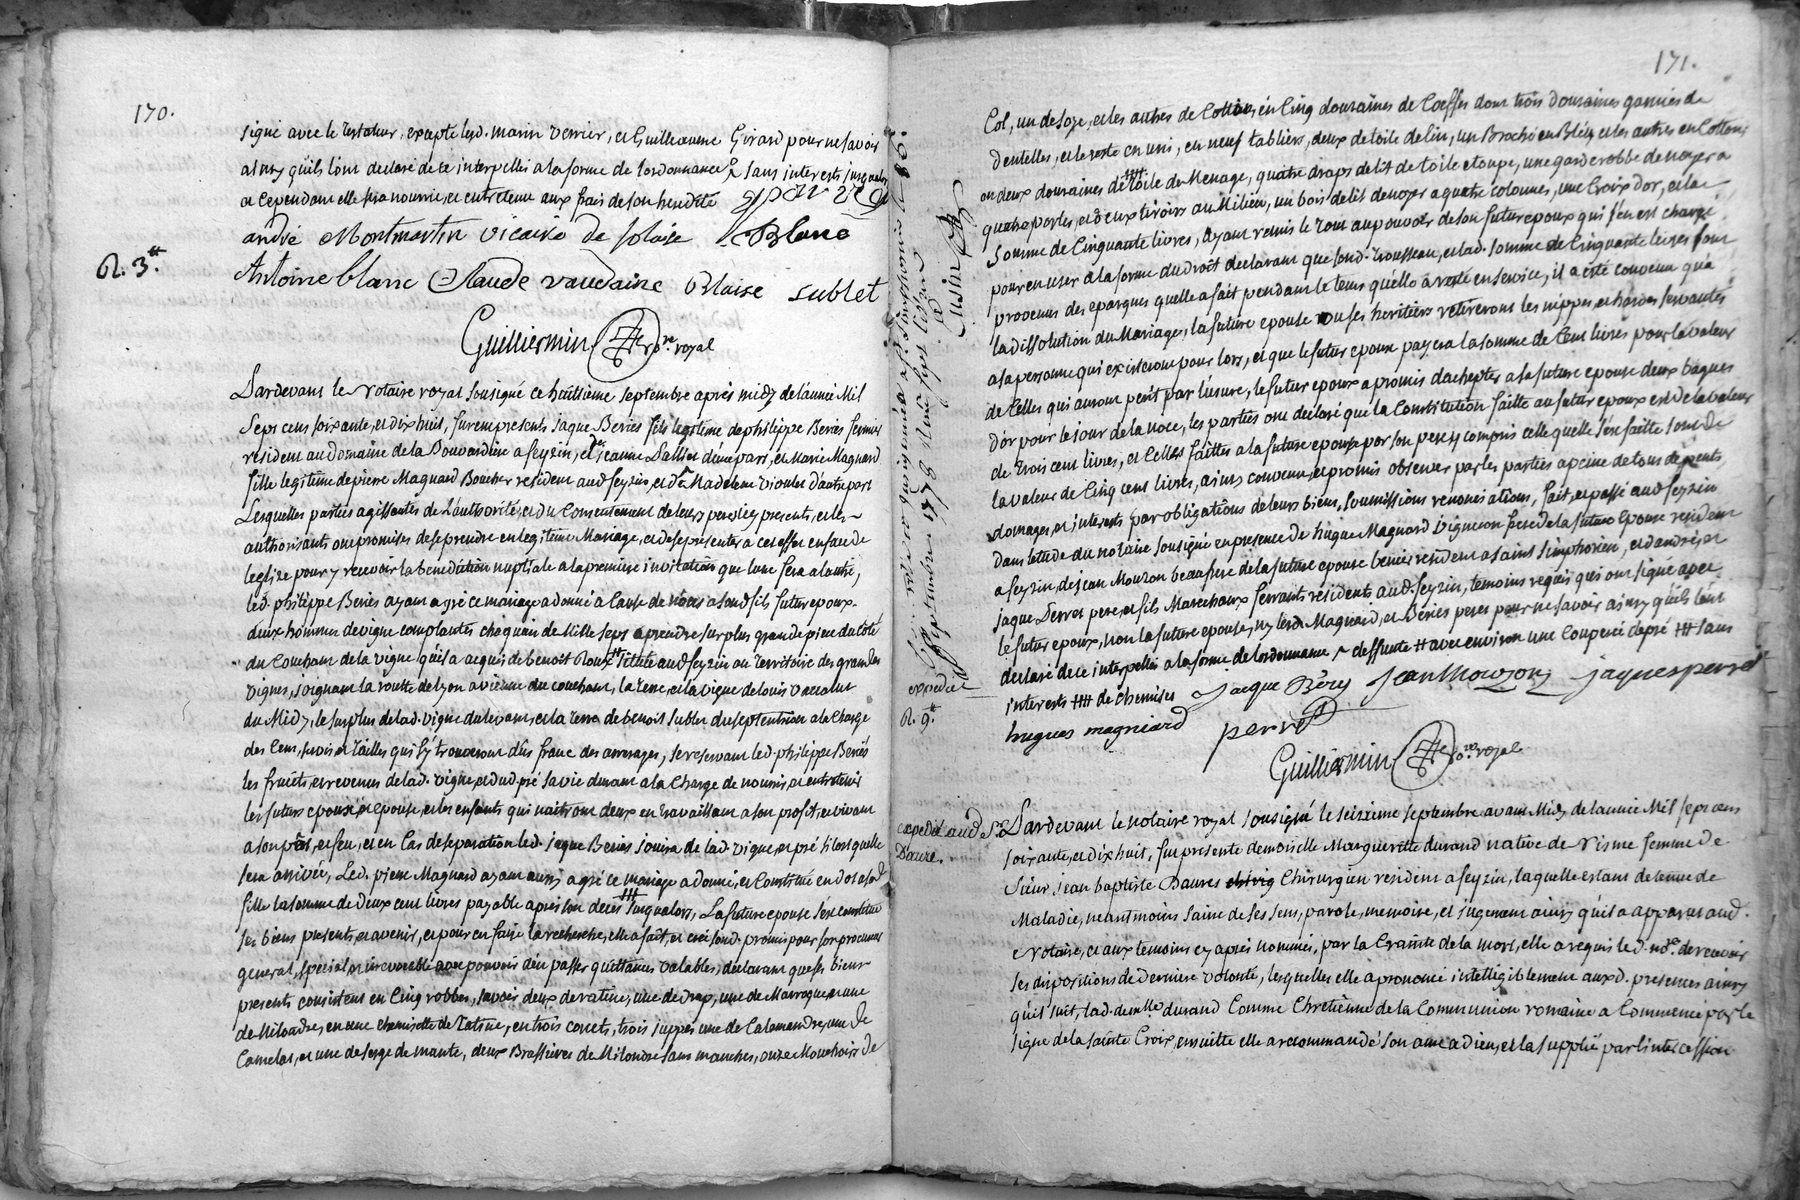 170.
signé avec le testateur, excepté led. marin verrier, et Guilleaume Girard pour ne savoir
ainsy qu'ils l'ont declaré de ce interpellés a la forme de l'ordonnance sans interests jusqualors
et cependant elle sera nourrie, et entretenue aux frais de son herédité
andré Montmartin vicaire de solaise Blanc
R. 3.tt
Antoine blanc Claude vaudaine Blaise sublet
Guilliermin no.re royal
Pardevant le Notaire royal sousigné ce huittieme septembre après midy de l'année Mil
Sept cens soixante, et dix huit, furent presents jaque Beriés fils legitime de philippe Beriés fermier
résident au domaine de la Bouvardière a feyzin, et de jeanne d'une part, et Marie Magnard
fille legitime de pierre Magnard Boucher resident aud. feyzin, et de Madeleine violet d'autre part
Lesquelles parties agissantes de l'authorité, et du Consentement de leurs peres icy presents, et les
authorisants ont promises de se prendre en legitime Mariage, et de se présenter a cet effet en face de
leglize pour y recevoir la benediction nuptiale a la premiere invitation que l'une fera a l'autre,
led. philippe Beriés ayant agréé ce mariage a donné à Cause de nôces a sond. fils futur epoux
deux hommes de vigne complantés chaquun de Mille seps a prendre sur plus grande piece du côté
du Couchant de la vigne qu'il a acquis de benoit Roux située aud. feyzin au territoire des grandes
vignes, joignant la routte de lyon a vienne du couchant, la terre, et la vigne de louis
du Midy, le surplus de lad. vigne du levant, et la terre de benoit sublet du septentrion a la Charge
des Cens, servis et Tailles qui s'y trouveront dûs franc des arrerages, se reservant led. philippe Beriés
les fruits, et revenus de lad. vigne, et dud. pré sa vie durant a la Charge de nourrir, et entretenir
les futurs epoux, et epouse, et les enfants qui naitront d'eux en travaillant a son profit, et vivant
a son pôt, et feu, et en Cas de separation led. jaque Beriés jouira de lad. vigne, et pré si lors quelle
sera arrivée, Led. pierre Magnard ayant aussy agréé ce mariage a donné, et Constitué en dot a sad.
fille la somme de deux cent livres payable après son decès jusqualors, La future epouse s'est constitué
ses biens presents, et avenir, et pour en faire la recherche, elle a fait, et créé sond. promis pour son procureur
general, special, et irrevocable avec pouvoir d'en passer quittances valables, declarant que ses biens
presents consistent en Cinq robbes, savoir deux de ratine, une de drap, une de Maroque, et une
de Miloudre, en une chemisette de ratine, en trois corcets, trois juppes une de Calemandre, une de
Camelot, et une de serge de mante, deux Brassieres de Milondre sans manches, onze Mouchoirs de
171.
Col, un de soye, et les autres de Cotton, en Cinq douzaines de Coeffes dont trois douzaines garnies de
dentelles, et le reste en uni, en neuf tabliers, deux de toile de lin, un Broché en Bleu, et les autres en Cottons
en deux douzaines de toile du Menage, quatre draps de lit de toile etoupe, une garderobbe de noyer a
quatre portes, et deux tiroirs au Milieu, un bois de lit de noyer a quatre colonnes, une Croix d'or, et la
somme de Cinquante livres, ayant remis le tout au pouvoir de son futur epoux qui s'en est chargé
pour en user a la forme du droit declarant que sond. trousseau, et lad. somme de Cinquante livres sont
provenus des epargnes quelle a fait pendant le tems qu'elle a resté en service, il a esté convenu qu'a
la dissolution du Mariage, la future epouse ou ses heritiers retireront les nippes, et hardes servantes
a sa personne qui existeront pour lors, et que le futur epoux payera la somme de Cent livres pour la valeur
de Celles qui auront perit par l'usure, le futur epoux a promis d'achepter a la future epouse deux bagues
d'or pour le jour de la noce, les parties ont declaré que la Constitution faitte au futur epoux est de la valeur
de trois cent livres, et Celles faittes a la future epouse par son pere y compris celle quelle s'en faitte sont de
la valeur de Cinq cent livres, ainsy convenu, et promis observer par les parties a peine de tous depents
domages, et interests par obligations de leurs biens, soumissions renonciations, fait, et passé aud. feyzin
dans l'etude du notaire sousigné en presence de hugue Magnard vigneron frere de la future epouse resident
a feyzin, de jean Mouzon beaufrere de la future epouse resident a saint simphorien, et d'andré, et
jaque Perret pere, et fils Marechaux ferrants résidents aud. feyzin, temoins requis qui ont signé avec
le futur epoux, non la future epouse, ny lesd. Magnard, et Beriés peres pour ne savoir ainsy qu'ils l'ont
declaré de ce interpellés a la forme de l'ordonnance avec environ une Couperée de pré sans
interests de chemises jacque Béry jean Mouzon jaque perret
hugues magniard perret
Guilliermin no.re royal
septembre 1778
expedié
R. 9.tt
expedié aud. s.r
Daures.
Pardevant le notaire royal sousigné le seizieme septembre avant Midy de l'année Mil sept cens
soixante, et dix huit, fut presente demoiselle Margueritte durand native de Visme femme de
Sieur jean baptiste Daures Chirurgien resident a feyzin, laquelle estant detenue de
Maladie, neantmoins saine de ses sens, parole, memoire, et jugement ainsy qu'il a apparu aud.
Notaire, et aux temoins cy après nommés, par la Crainte de la mort, elle a requis led. no.re de recevoir
ses dispositions de derniere volonté, lesquelles elle a prononcé intelligiblement auxd. presences ainsy
qu'il suit, lad. dem.lle durand Comme Chretiènne de la Communion romaine a Commencé par le
signe de la sainte Croix, ensuitte elle a recommandé son ame a dieu, et la supplié par l'intercession